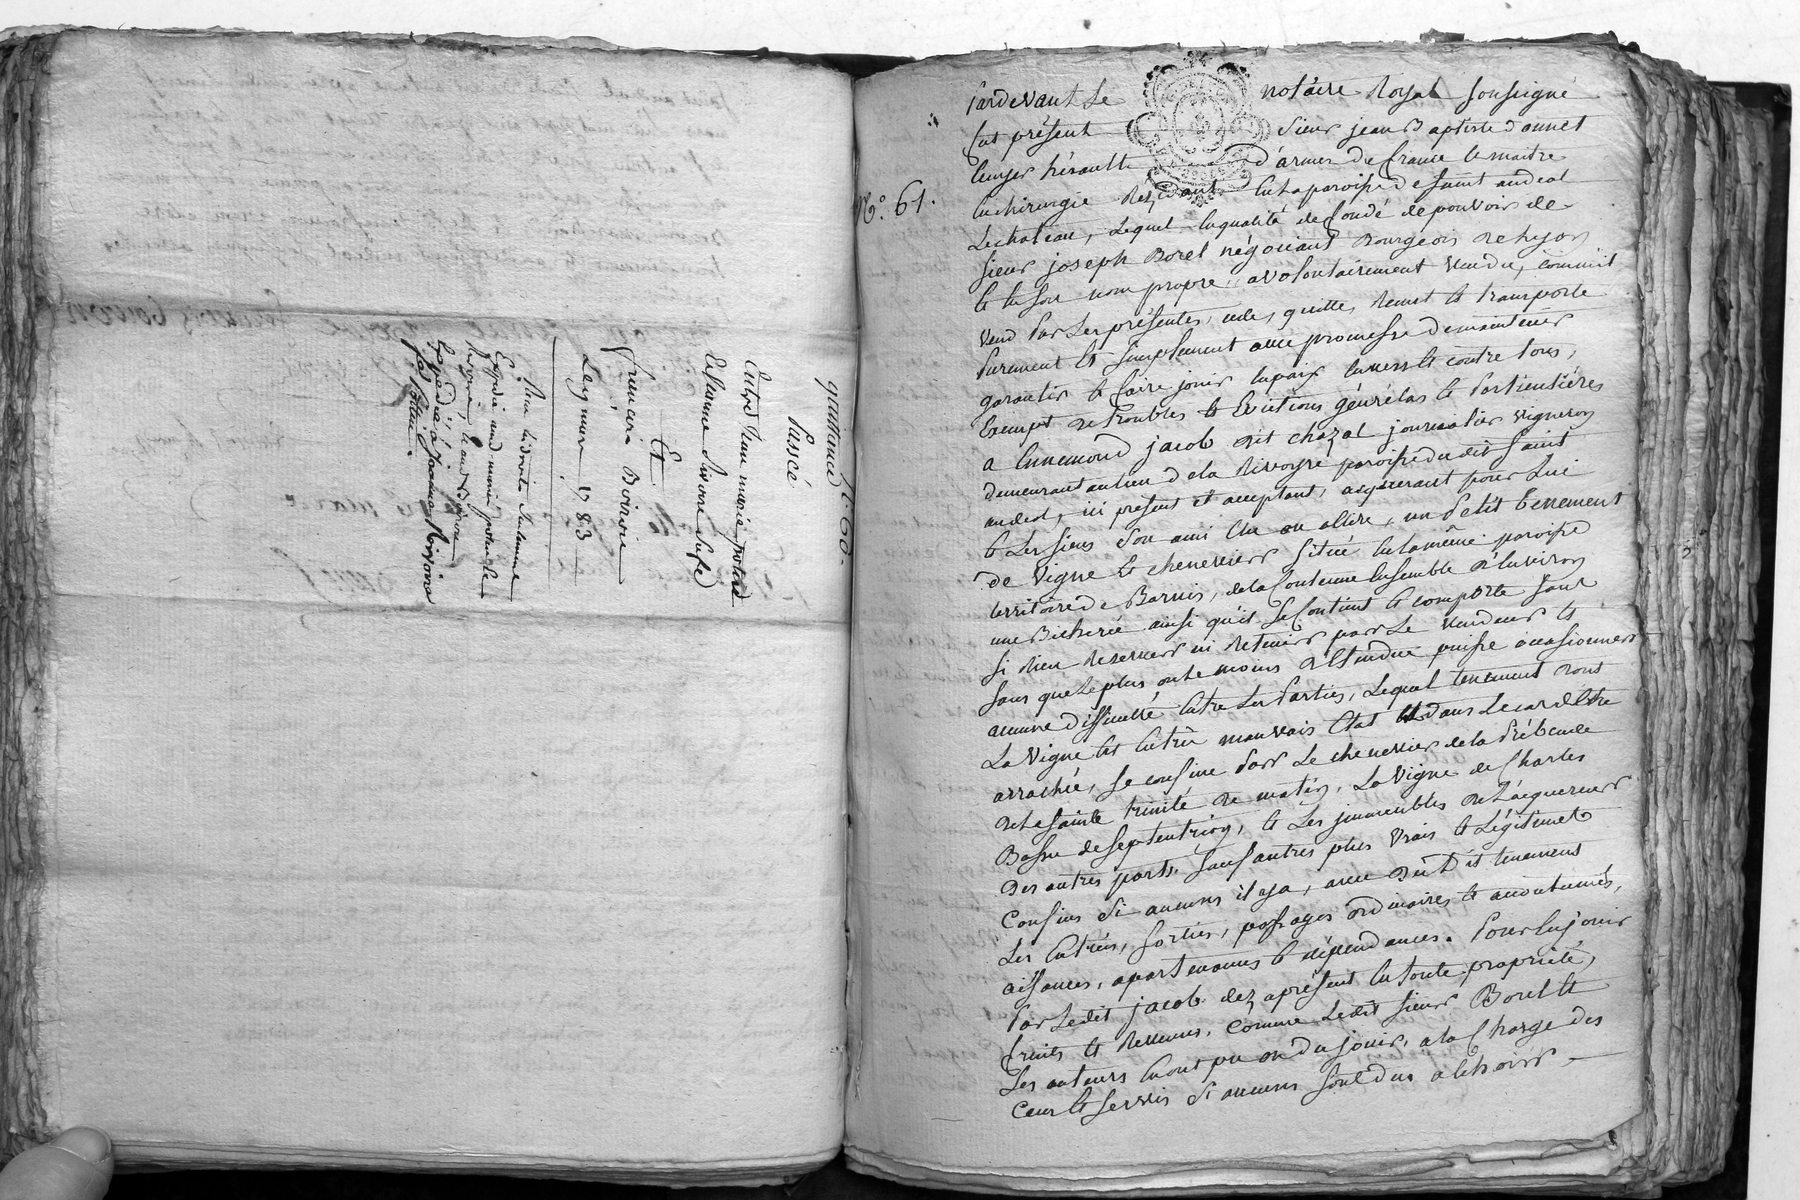 N.º 60.
quittance
Passée
Entre Anne marie poteed
Et
françois Boiron
Le 9 mars 1783
Expédié aud
Expédié à Jeanne Rivoire
N.º 61.
Pardevant Le notaire Royal soussigné
fut présent Sieur jean Baptiste Donnet
hérault d'armes de france Le maitre
En chirurgie Résidant En la paroisse de saint andeol
Le chateau, Lequel En qualité de fondé de pouvoir de
sieur joseph Borel négociant Bourgeois de Lyon
Et En son nom propre, a volontairement vendu, comme il
vend Par Les présentes, cede, quitte, Remet Et transporte
Purement Et simplement avec promesse de maintenir
garantir Et faire jouir En paix Envers Et contre tous,
Exempt de troubles Et Evictions généralles Et Particulières
a Ennemond jacob dit chazal journalier vigneron
demeurant au lieu de la Rivoyre paroisse dudit saint
andeol, ici présent et acceptant, acquerant pour Lui
Et Les siens son ami Elu ou a Elire, un Petit tenement
de vigne Et chenevier situé En la même paroisse
territoire de Barnis, de la Contenue Ensemble d'Environ
une Bicherée ainsi qu'il se Contient Et comporte sans
si Rien Reserver ni Retenir par Le vendeur Et
sans que Le plus ou Le moins d'Etendue puisse occasionner
aucune difficulté Entre Les Parties, Lequel tenement dont
La vigne Est En très mauvais Etat Et dans Le cas d'Etre
arrachée, se confine Par Le chenevier de la Prébende
de La sainte trinité de matin, La vigne de Charles
Basse de septentrion, Et Les immeubles de L'acquereur
des autres parts, sauf autres plus vrais Et Légitimes
Confins si aucuns il y a, avec dudit tenement
Les Entrées, sorties, passages ordinaires Et accoutumés,
aisances, apartenances Et dépendances. Pour En jouir
Par Ledit jacob dez aprésent En toute propriété,
fruits Et Revenus, comme Ledit sieur Borel Et
Les auteurs En ont pu ou du jouir, a la Charge des
Cens Et servis si aucuns sont dus a Echoir